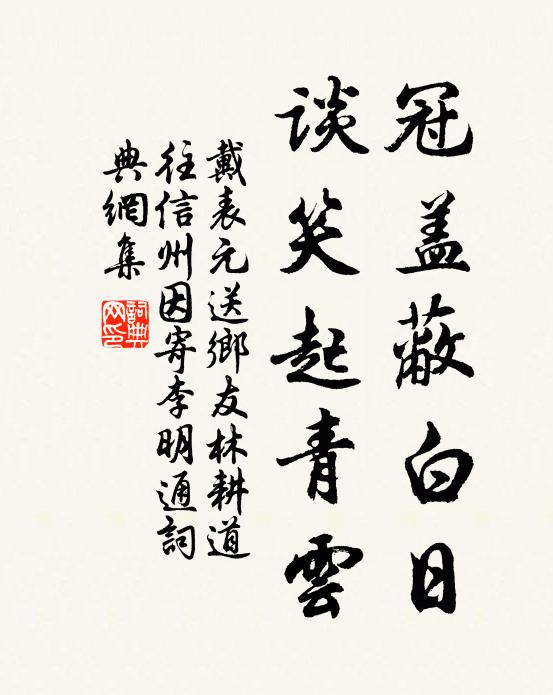 冠蓋蔽白日
談笑起青雲
戴表元送鄉友林耕道
往信州因寄李明通詞
典網集
詞典
网印